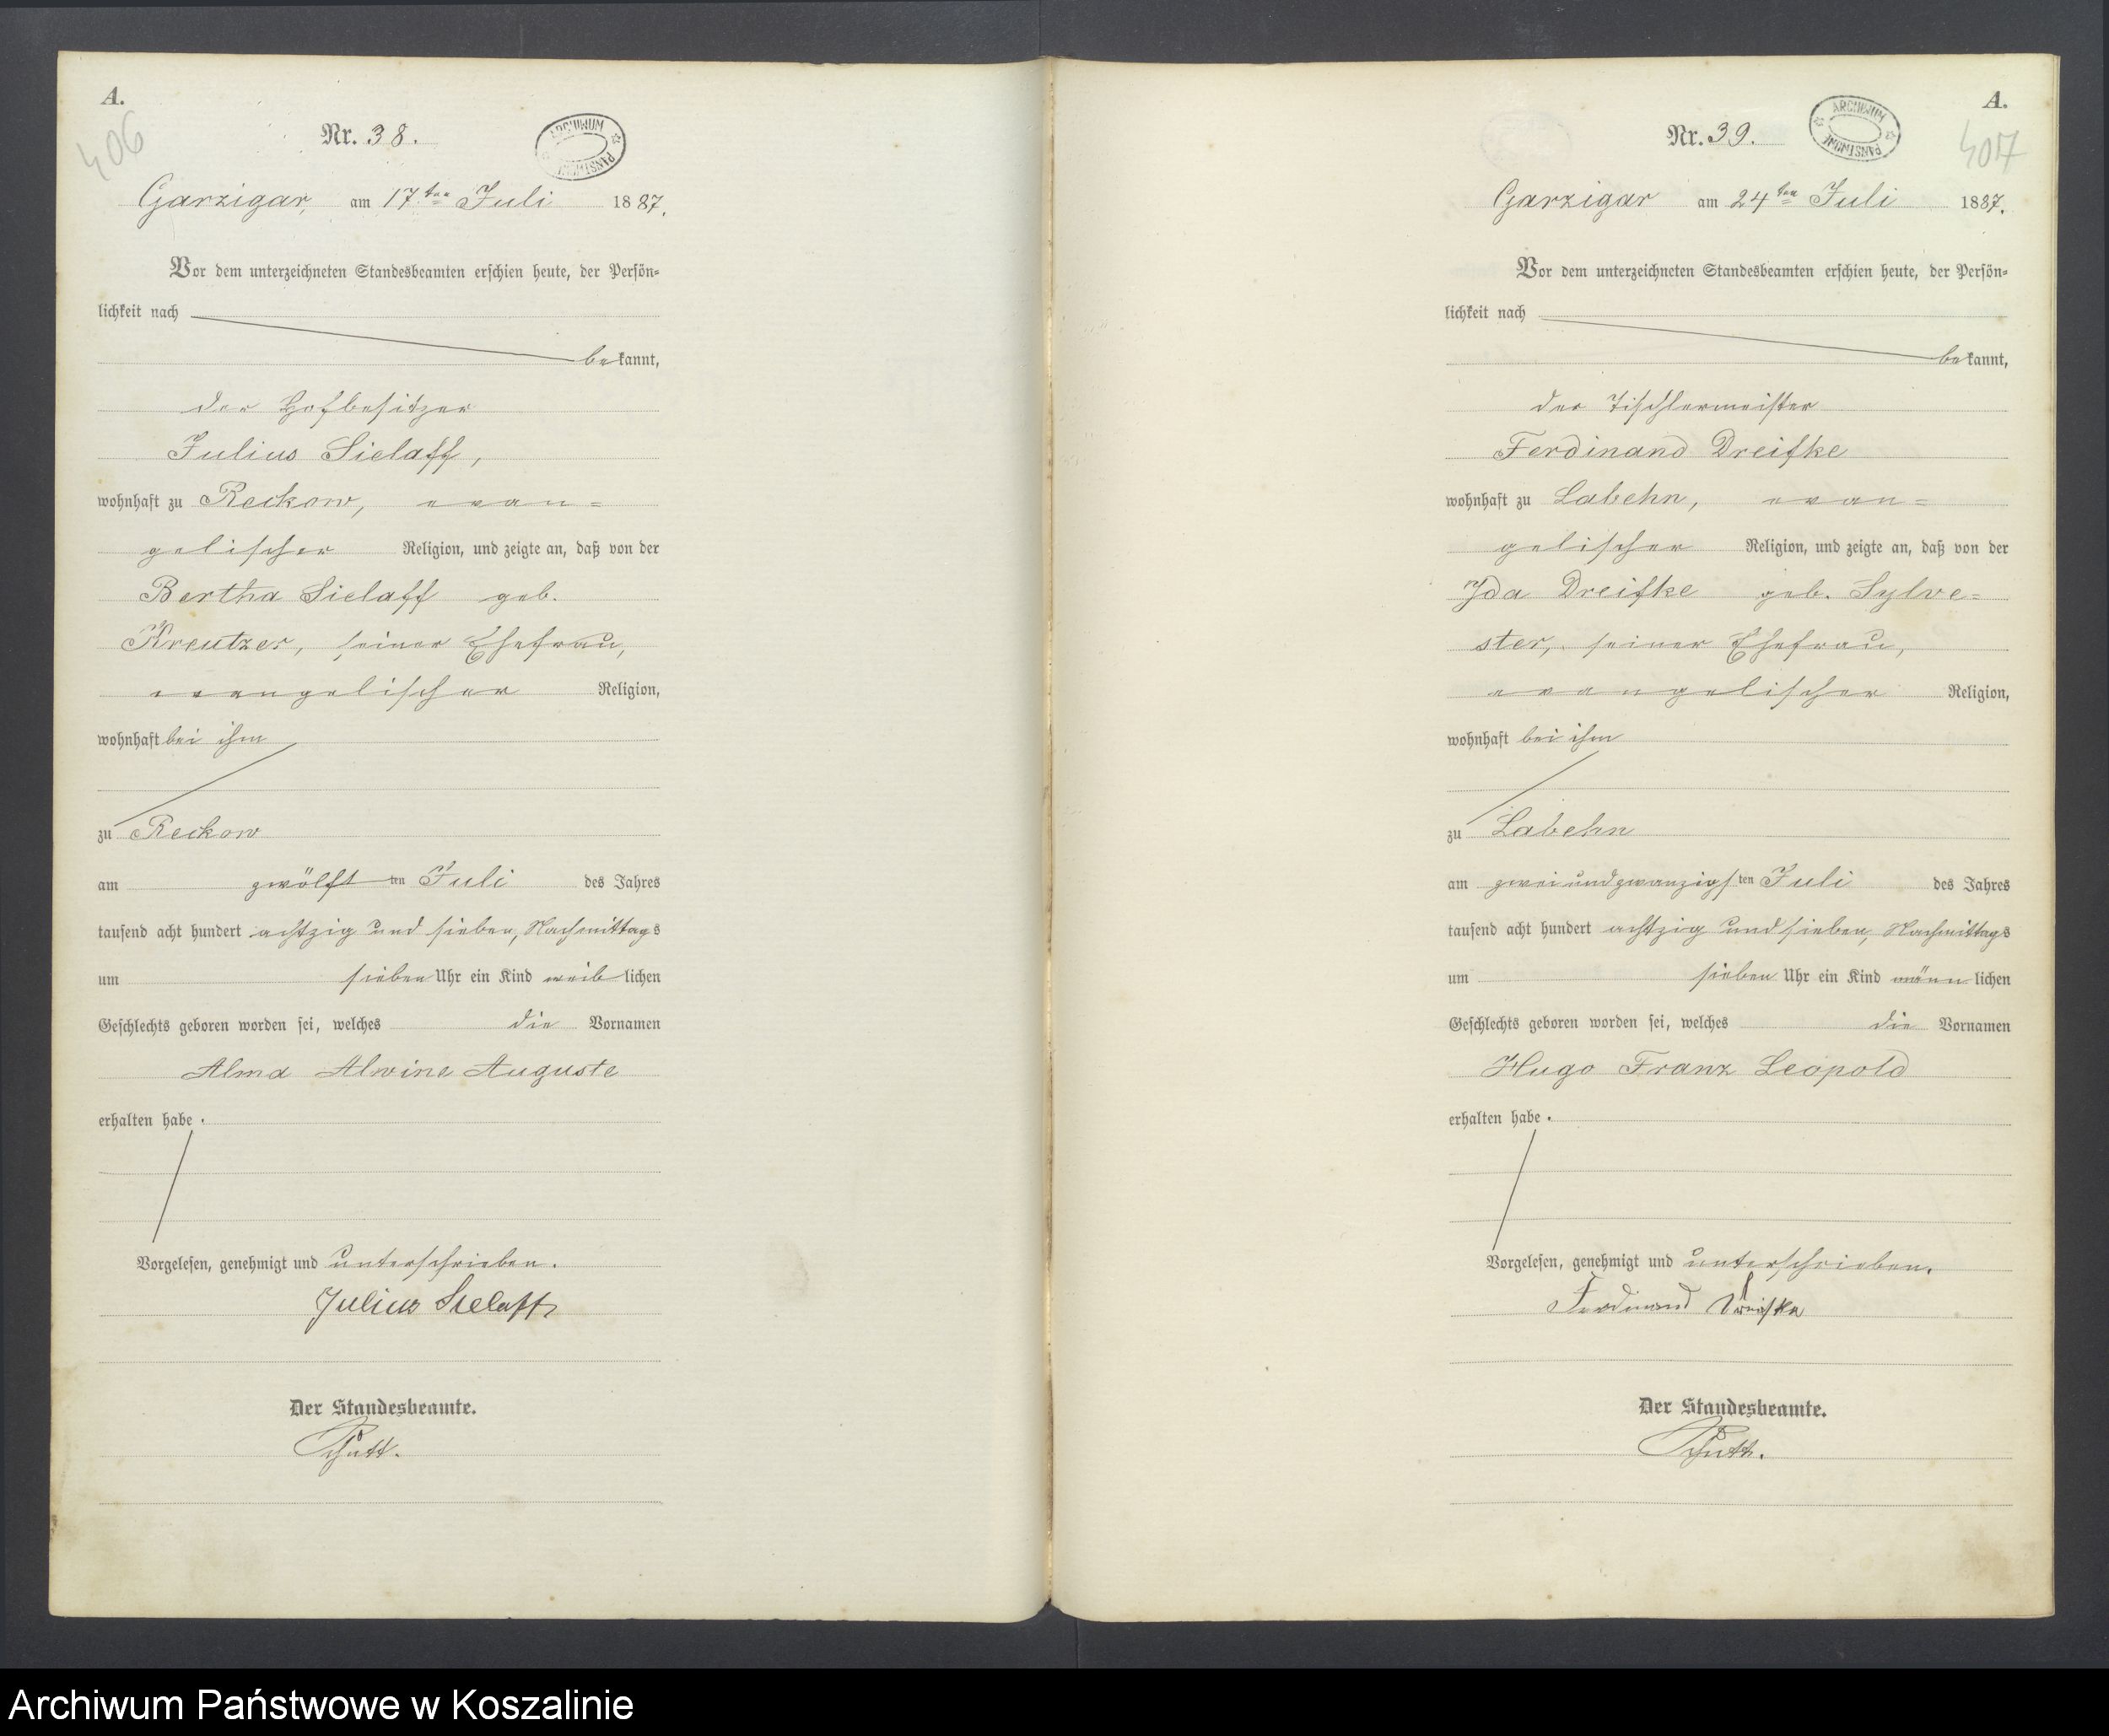 A.
406
Nr. 38.
ARCHIWUM PAŃSTWOWE
Garzigar, am 17ten Juli 1887.
Vor dem unterzeichneten Standesbeamten erschien heute, der Persön=
lichkeit nach
bekannt,
der Hofbesitzer
Julius Sielaff,
wohnhaft zu Reckow, evan=
gelischer Religion, und zeigte an, daß von der
Bertha Sielaff geb.
Kreutzer, seiner Ehefrau,
evangelischer Religion,
wohnhaft bei ihm
zu Reckow
am zwölften Juli des Jahres
tausend acht hundert achtzig und sieben, Nachmittags
um sieben Uhr ein Kind weiblichen
Geschlechts geboren worden sei, welches die Vornamen
Alma Alwine Auguste
erhalten habe.
Vorgelesen, genehmigt und unterschrieben.
Julius Sielaff
Der Standesbeamte.
A.
407
Nr. 39.
ARCHIWUM PAŃSTWOWE
Garzigar am 24ten Juli 1887.
Vor dem unterzeichneten Standesbeamten erschien heute, der Persön=
lichkeit nach
bekannt,
der Tischlermeister
Ferdinand Dreifke
wohnhaft zu Labehn, evan=
gelischer Religion, und zeigte an, daß von der
Ida Dreifke geb. Sylve=
ster, seiner Ehefrau,
evangelischer Religion,
wohnhaft bei ihm
zu Labehn
am zweiundzwanzigsten Juli des Jahres
tausend acht hundert achtzig und sieben, Nachmittags
um sieben Uhr ein Kind männlichen
Geschlechts geboren worden sei, welches die Vornamen
Hugo Franz Leopold
erhalten habe.
Vorgelesen, genehmigt und unterschrieben.
Ferdinand Dreifke
Der Standesbeamte.
Archiwum Państwowe w Koszalinie